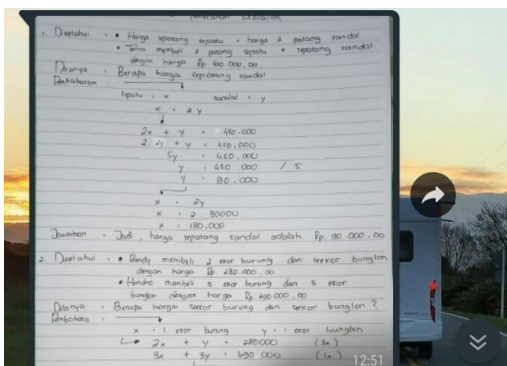 1. Diketahui : • Harga sepasang sepatu = harga 2 pasang sandal
• Tania membeli 2 pasang sepatu + sepasang sandal
dengan harga Rp. 450.000,00
Ditanya : Berapa harga sepasang sandal
Pembahasan :
sepatu = x sandal = y
x = 2y
2x + y = 450.000
2. 2y + y = 450.000
5y = 450.000
y = 450.000 / 5
y = 90.000
x = 2y
x = 2. 90000
x = 180.000
Jawaban : Jadi, harga sepasang sandal adalah Rp. 90.000,00
2. Diketahui : • Randy membeli 2 ekor burung dan seekor bunglon
dengan harga Rp 280.000,00
• Hendro membeli 3 ekor burung dan 3 ekor
bunglon dengan harga Rp
Ditanya : Berapa harga seekor burung dan seekor bunglon ?
x = 1 ekor burung y = 1 ekor bunglon
2x + y = 280000
3x + 3y =
12:51